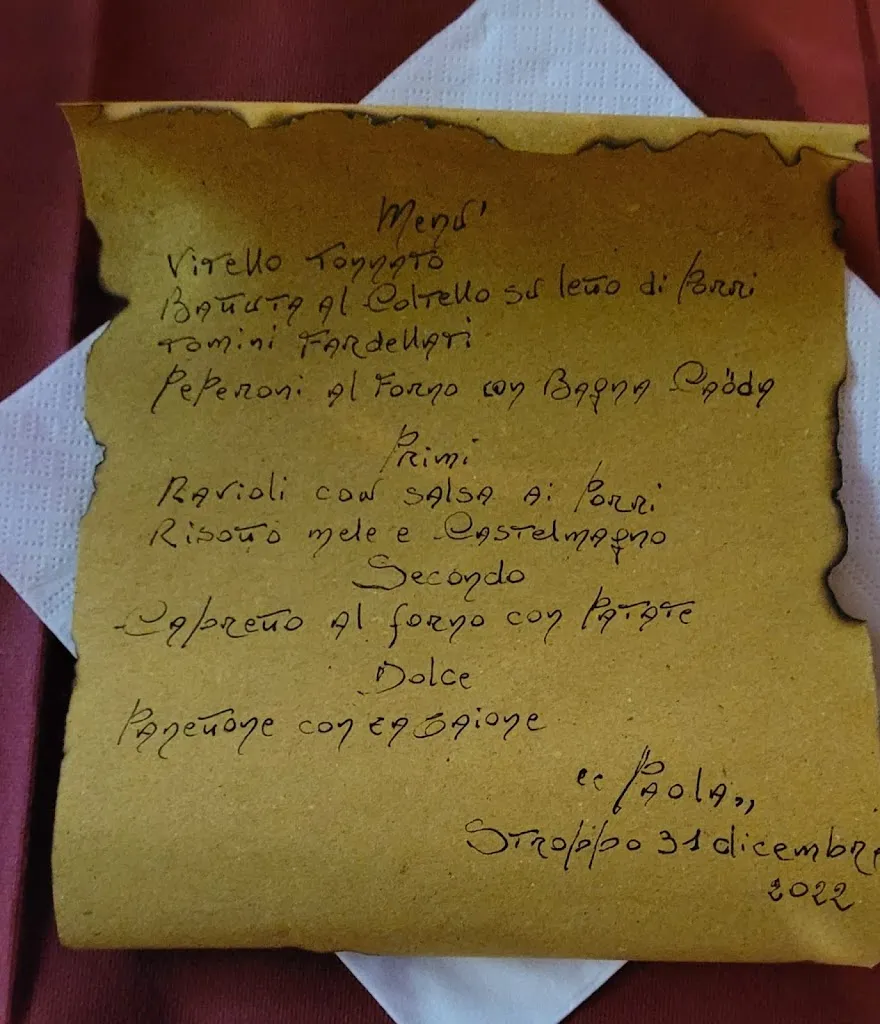 Menu'
Vitello Tonnato
Battuta al Coltello su letto di Porri
Tomini Fardellati
Peperoni al Forno con Bagna Caöda
Primi
Ravioli con salsa ai Porri
Risotto mele e Castelmagno
Secondo
Capretto al forno con Patate
Dolce
Panettone con zabaione
"Paola"
Stroppo 31 dicembre
2022